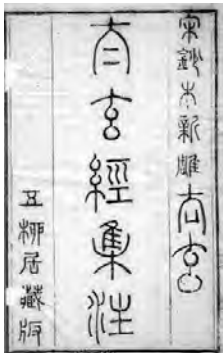 宋鈔本新雕太玄
太玄經集注
五柳居藏版